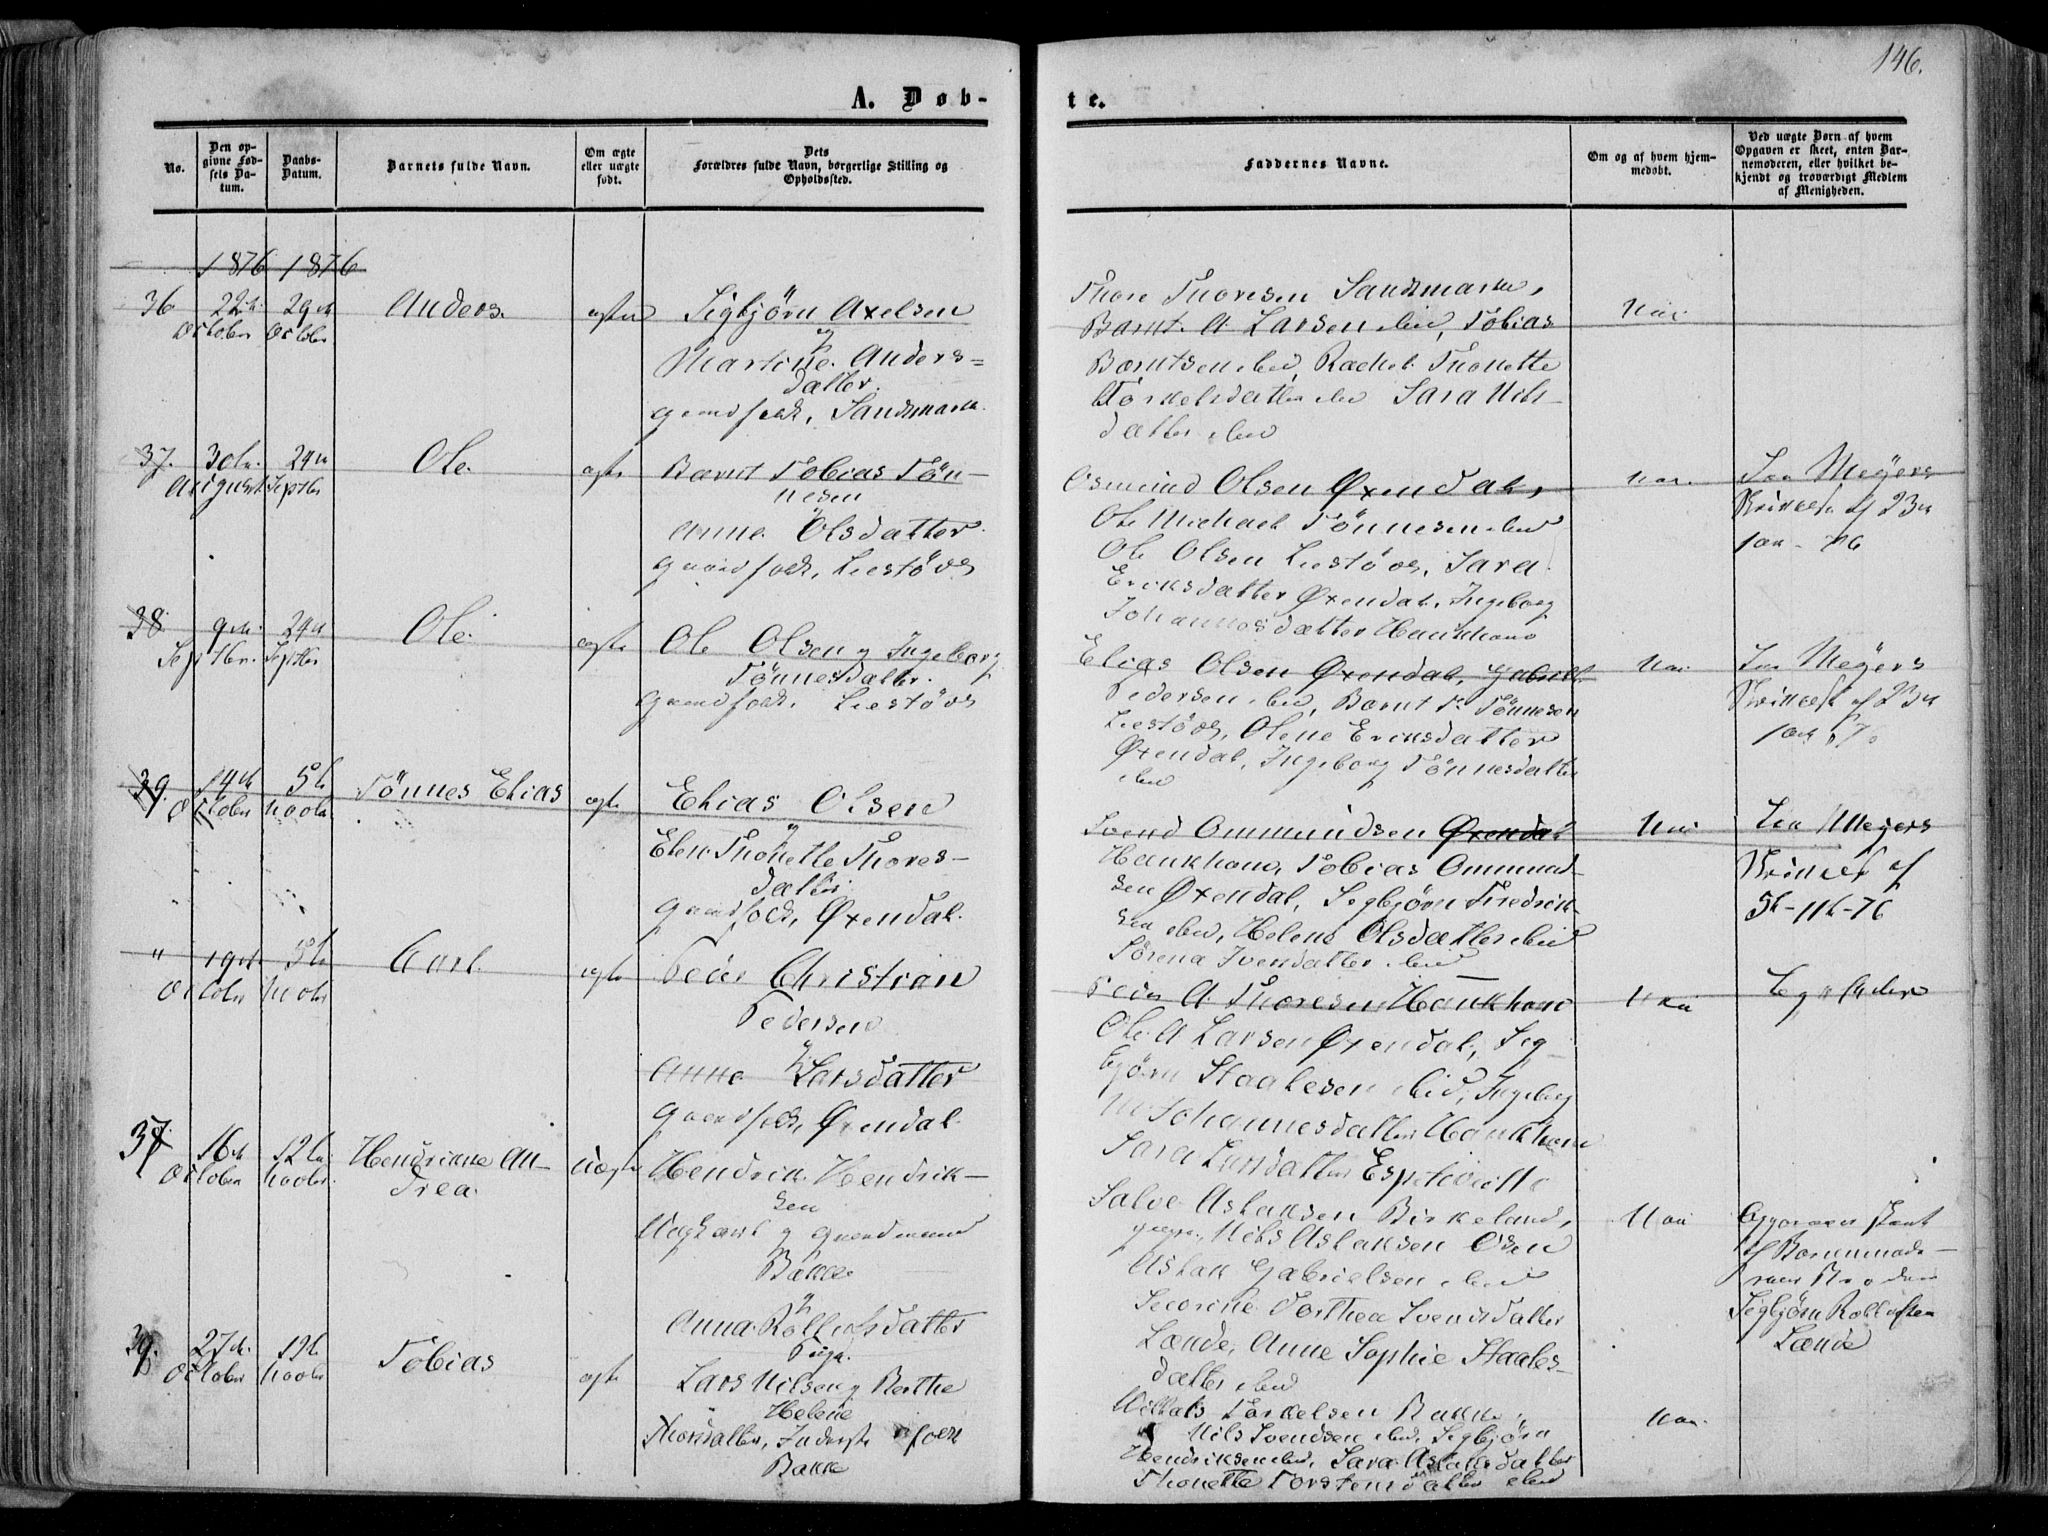 146.
A. Døb-
te.
No.
Den op-
givne Fød-
sels Da-
tum.
Daabs-
Datum.
Barnets fulde Navn.
Om ægte
eller uægte
født.
Dets
Forældres fulde Navn, borgerlige Stilling og
Opholdssted.
Faddernes Navne.
Om og af hvem hjem-
medøbt.
Ved uægte Børn af hvem
Opgaven er skeet, enten Bar-
nemoderen, eller hvilket be-
kjendt og troværdigt Medlem
af Menigheden.
1876 1876
36
22de
October
29de
October
Anders.
ægte
Sigbjörn Axelsen
og
Martine Anders=
datter.
Gaardfolk, Sandsmark.
Thore Thoresen Sandsmark,
Bernt A. Larsen ibid, Tobias
Berntsen ibid, Rachel Thonette
Torkelsdatter ibid Sara Nils-
datter ibid
Nei
37.
30te
August
24de
Septbr
Ole.
ægte
Bernt Tobias Tön-
nesen
og
Anne Olsdatter
Gaardfolk, Liestöds
Osmund Olsen Øxendal,
Ole Michael Tönnesen ibid
Ole Olsen Liestöds, Sara
Eriksdatter Øxendal, Ingeborg
Johannesdatter Haukhom
Nei.
Meyers
af 23de
76
38.
9de
Septbr.
24de
Septbr
Ole.
ægte
Ole Olsen og Ingeborg
Tönnesdatter.
Gaardfolk, Liestöds
Elias Olsen Øxendal, Gabriel
Pedersen ibid, Bernt T. Tönnesen
Liestöds, Olene Eriksdatter
Øxendal, Ingeborg Tönnesdatter
ibid
Nei
Meyers
af 23de
39.
14de
October
5te
Novbr
Tönnes Elias
ægte
Elias Olsen
og
Elen Thonette Thores-
datter
Gaardfolk, Øxendal.
Svend Ommundsen Øxendal
Haukhom, Tobias Ommund-
sen Øxendal, Sigbjörn Fredrik-
sen ibid, Helene Olsdatter ibid
Sörena Iversdatter ibid
Nei
Meyers
af
5te-11te-76
"
19de
October
5te
Novbr
Carl.
ægte
Peder Christian
Pedersen
og
Anne Larsdatter
Gaardfolk, Øxendal.
Peder A. Thoresen Haukhom
Ole A Larsen Øxendal, Sig-
björn Staalesen ibid, Ingeborg
M. Johannesdatter Haukhom
Sara Larsdatter Espetveitte
Nei
37
16de
October
12te
Novbr.
Hendrikke An-
drea.
Uægte
Hendrik Hendrik-
sen
Ungkarl og Gaardmand
Bakke
og
Anna Rollufsdatter
Pige.
Salve Aslaksen Birkeland,
Nils Aslaksen Osen
Aslak Gabrielsen ibid
Secorine Dorthea Svendsdatter
Lænde, Anne Sophie Staales-
datter ibid
Nei
af Barnemode-
rens Broder
Sigbjörn Rollufsen
Lænde
39.
27de
October
12te
Novbr
Tobias
ægte
Lars Nilsen og Berthe
Helene
Thorsdatter, Inderstefolk
Bakke
Torkelsen Bakke,
Nils Svendsen ibid, Sigbjörn
Hendriksen ibid, Sara Aslaksdatter
Thonette Torstensdatter ibid
Nei.